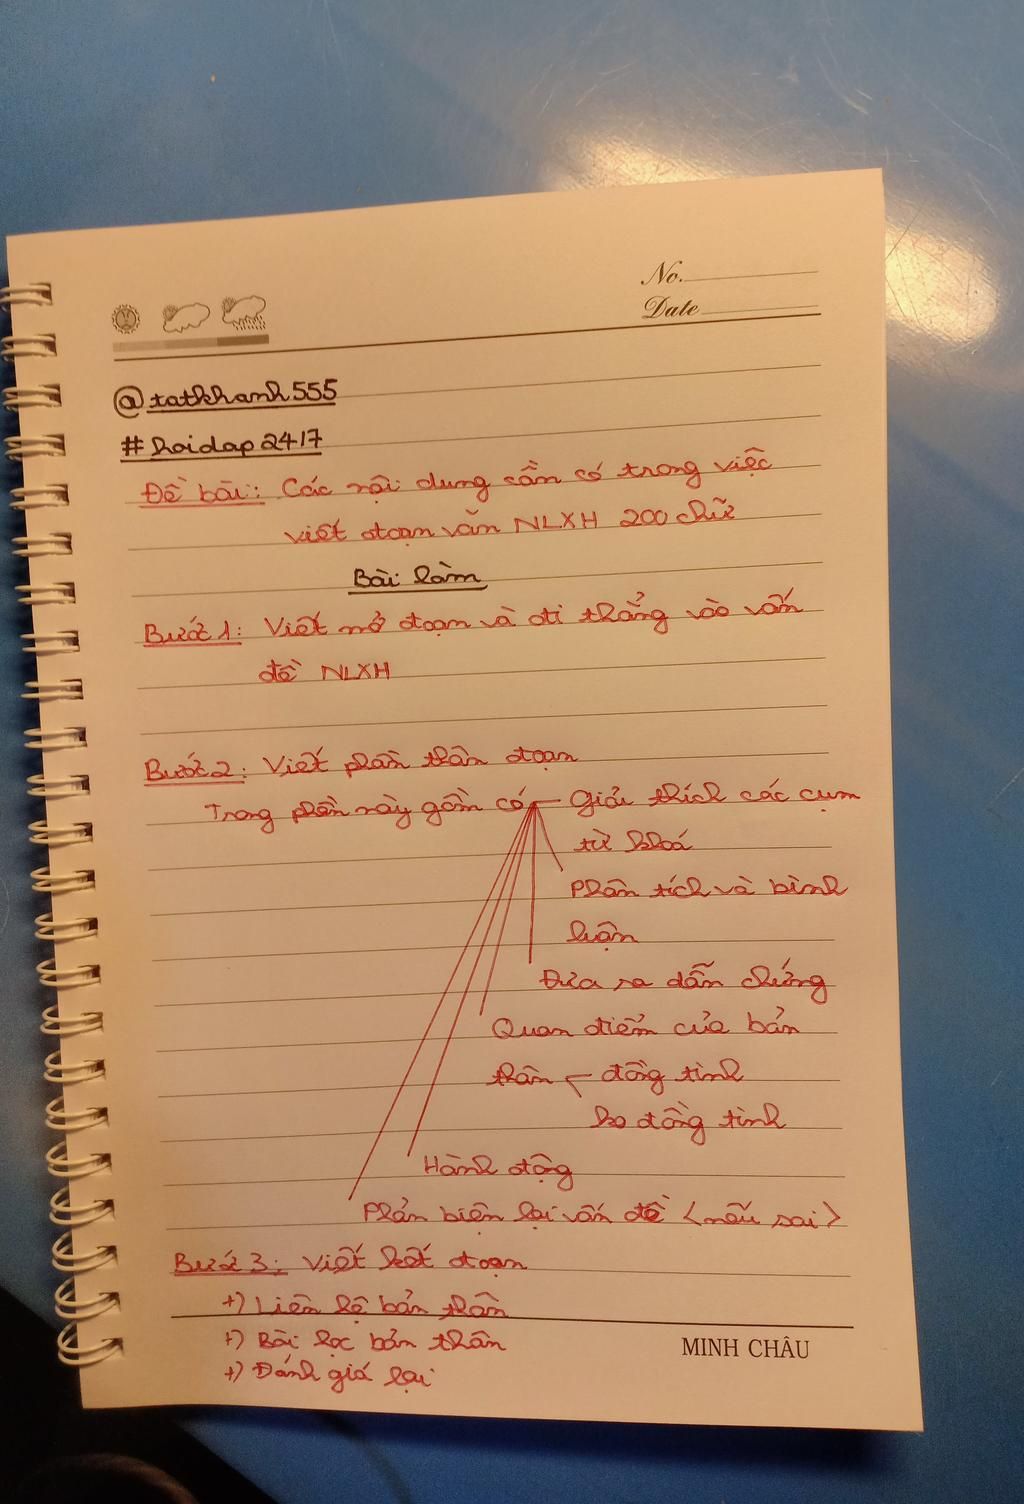 No.
Date
@tatkhanh555
#hoidap2417
Đề bài: Các nội dung cần có trong việc
viết đoạn văn NLXH 200 chữ
Bài làm
Bước 1: Viết mở đoạn và đi thẳng vào vấn
đề NLXH
Bước 2: Viết phần thân đoạn
Trong phần này gồm có - Giải thích các cụm
từ khoá
Phân tích và bình
luận
Đưa ra dẫn chứng
Quan điểm của bản
thân - đồng tình
ko đồng tình
Hành động
Phản biện lại vấn đề <nếu sai>
Bước 3: Viết kết đoạn
+) Liên hệ bản thân
+) Bài học bản thân
+) Đánh giá lại
MINH CHÂU